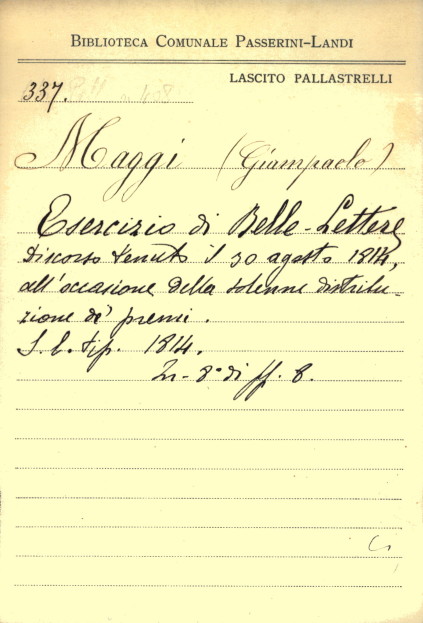 BIBLIOTECA COMUNALE PASSERINI-LANDI
LASCITO PALLASTRELLI
337.
Maggi (Giampaolo)
Esercizio di Belle-Lettere
Discorso tenuto il 30 agosto 1814,
all'occasione della solenne distribu-
zione de' premi.
S. l. tip. 1814.
In-8° di ff. 8.